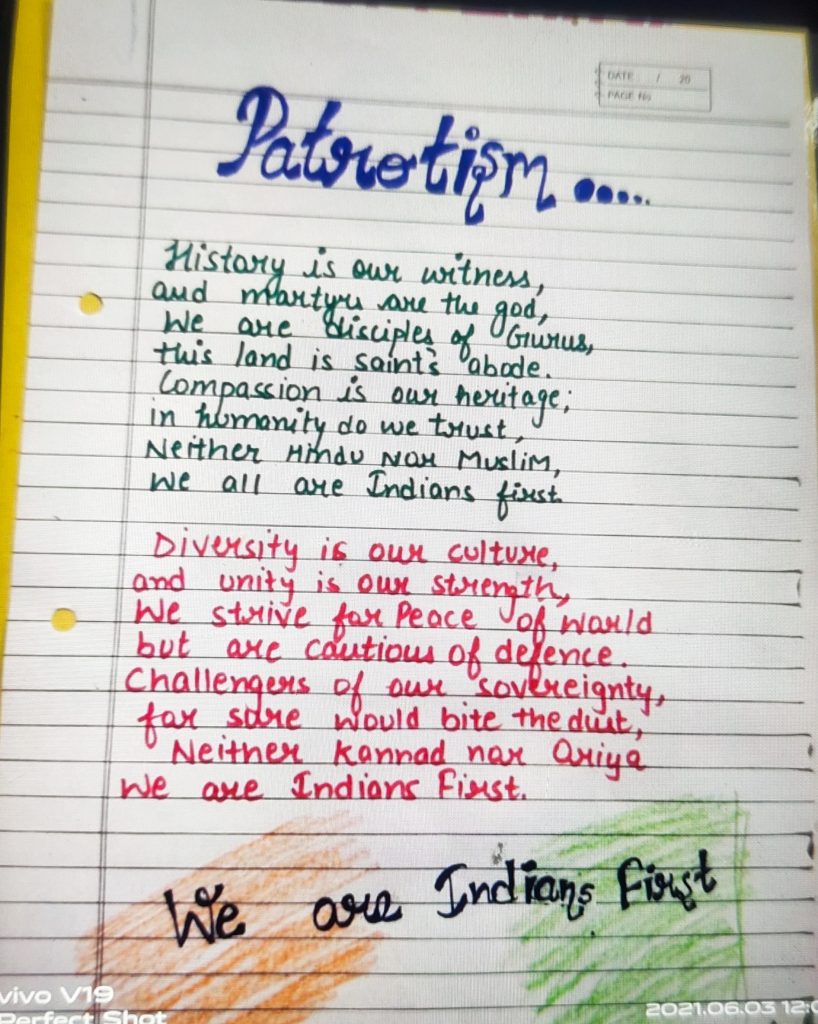 DATE / 20
PAGE No
Patriotism.....
History is our witness,
and martyrs are the god,
We are disciples of Gurus,
this land is saint's abode.
Compassion is our heritage;
in humanity do we trust,
Neither Hindu Nor Muslim,
We all are Indians first.
Diversity is our culture,
and unity is our strength,
We strive for Peace of world
but are cautious of defence.
Challengers of our sovereignty,
for sure would bite the dust,
Neither Kannad nor Oriya
We are Indians First.
We are Indians First
vivo V19
Perfect Shot
2021.06.03 12:0